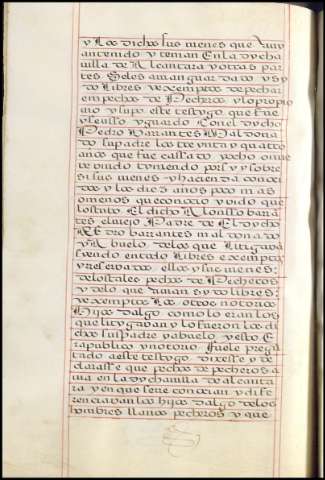 y los dichos sus vienes que avia
an tenido y tenian En la Dycha
villa de Alcantara y otras par
tes Se les avia guardado y sy
do libres y exemptos de pechar
en pechos de Pecheros y lo propio
vio y supo este testigo que fue
y se uso y guardo Con el dycho
Pedro Barantes Maldona
do su padre los treynta y quatro
años que fue cassado y ocho o nue
ve biudo tyniendo por sy y sobre
si sus vienes y hacienda conoci
dos y los diez años poco mas
o menos que conocio y vido que
los tubo El dicho Alonsso barra
tes el viejo Padre de El dycho
Pedro barrantes maldonado
y Abuelo de los que litigavan
syendo entrado libres e exemptos
y reservados ellos y sus vienes
de los tales pechos de Pecheros
y de lo que avian sydo libres
y exemptos los otros notorios
Hijos dalgo como lo eran los
que lytygavan y lo fueron los di
chos su padre y abuelo y esto E
ra publico y notorio fuele pregu
tado a este testigo dixesse y de
clarasse que pechos de pecheros a
via en la dycha villa de alcanta
ra y en que se re conocian y dife
renciavan los hijos dalgo de los
hombres llanos pecheros y que